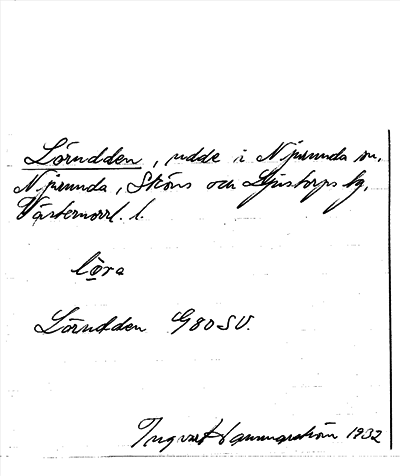 Lörudden, udde i Njurunda sn,
Njurunda, Sköns och Ljustorps tg,
Västernorrl. l.
löra
Lörudden G80SV.
Ingvar Hammarström 1932